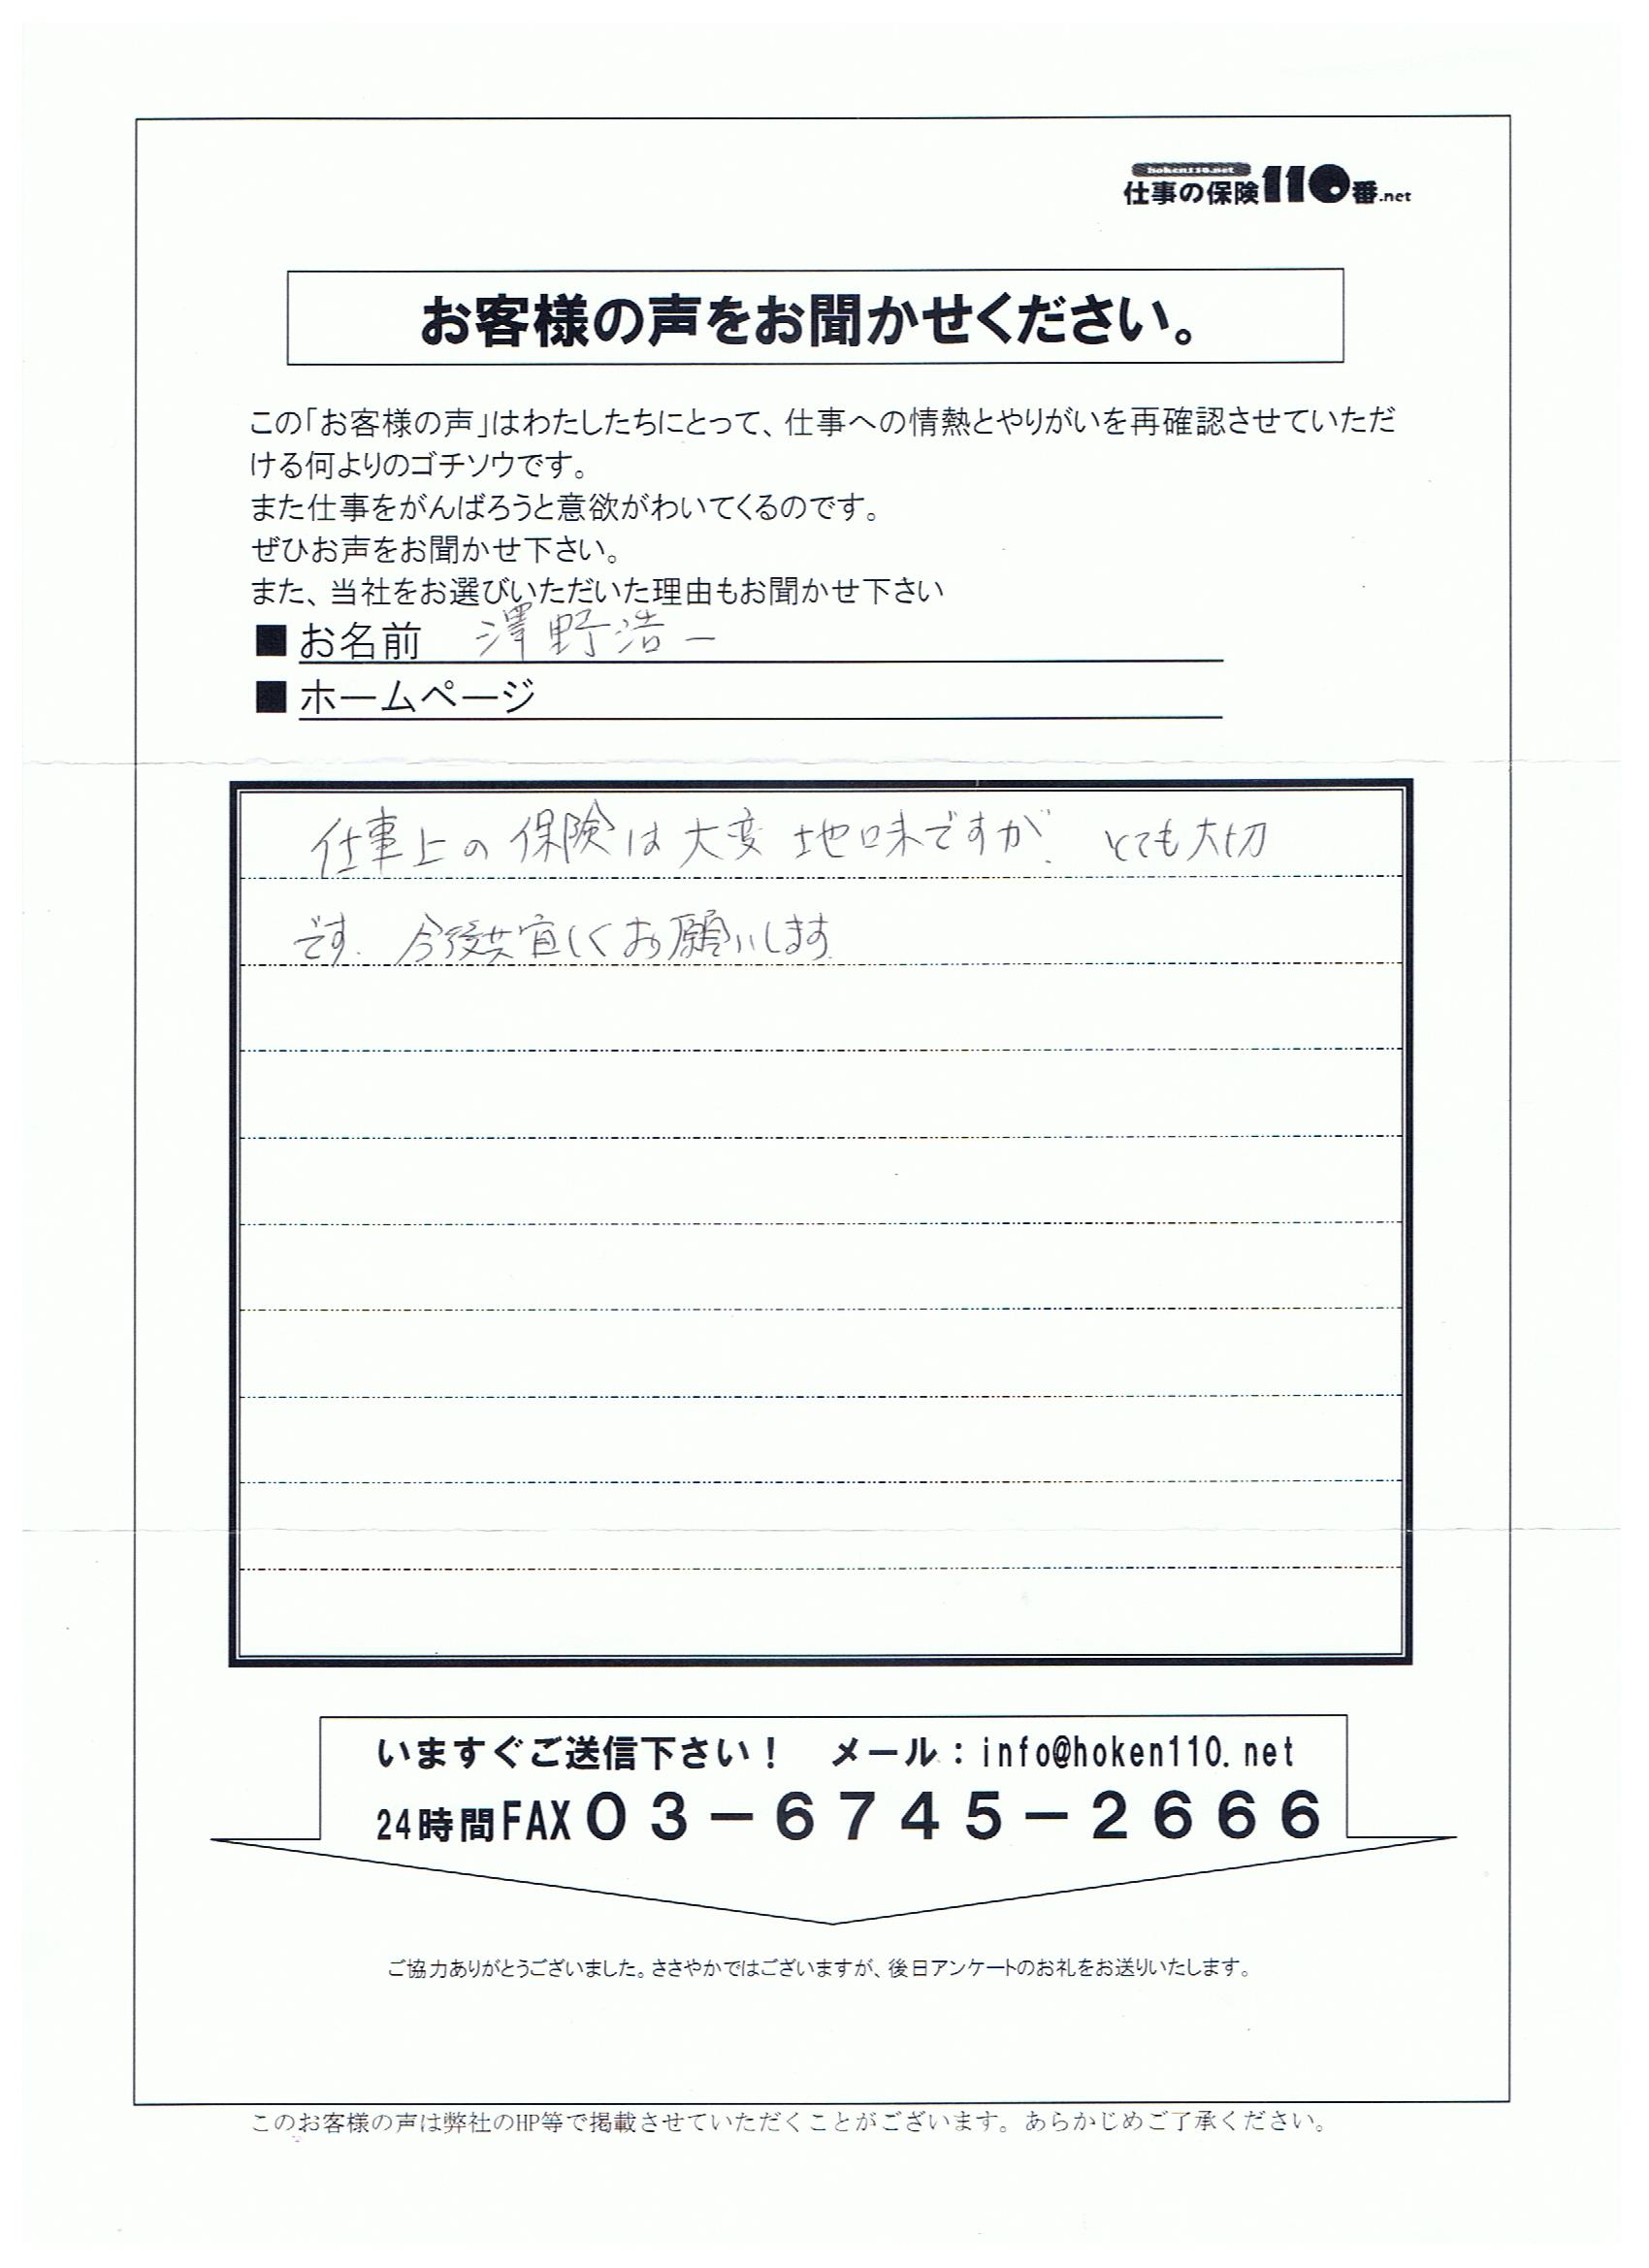 hoken110.net
仕事の保険110番.net
お客様の声をお聞かせください。
この「お客様の声」はわたしたちにとって、仕事への情熱とやりがいを再確認させていただ
ける何よりのゴチソウです。
また仕事をがんばろうと意欲がわいてくるのです。
ぜひお声をお聞かせ下さい。
また、当社をお選びいただいた理由もお聞かせ下さい
■お名前 澤野浩一
■ホームページ
仕事上の保険は大変地味ですが、とても大切
です。今後共宜しくお願いします。
いますぐご送信下さい！ メール：info@hoken110.net
24時間FAX０３－６７４５－２６６６
ご協力ありがとうございました。ささやかではございますが、後日アンケートのお礼をお送りいたします。
このお客様の声は弊社のHP等で掲載させていただくことがございます。あらかじめご了承ください。